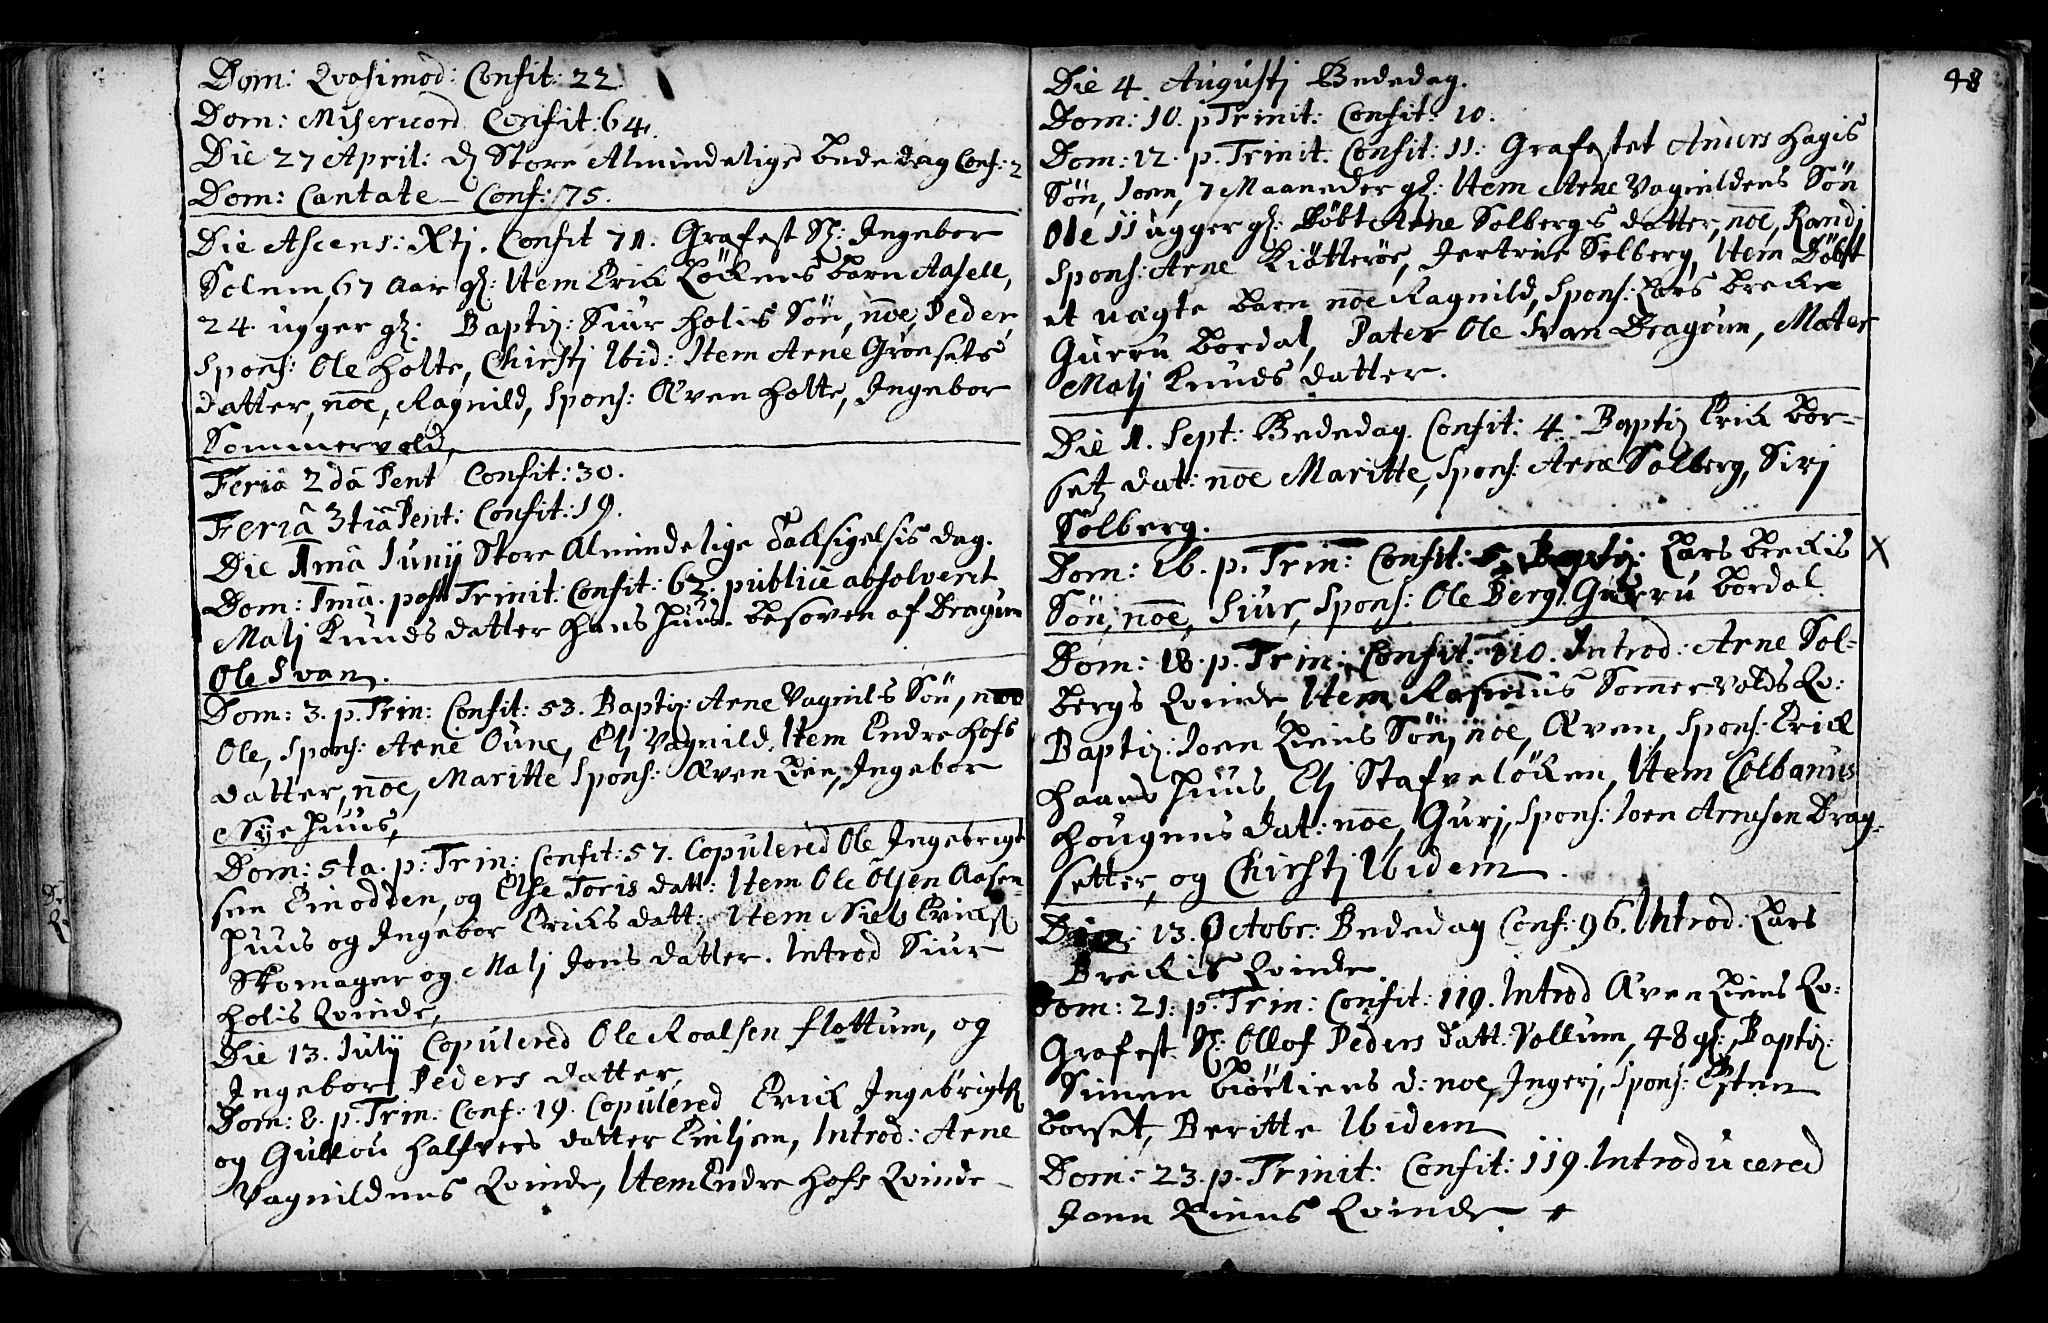 Dom: Qvasimod: Confit: 22.
Dom: Misericord Confit: 64.
Die 27 April: dȝ Store Almindelige bededag Conf: 2
Dom: Cantate – Conf: 75.
Die Ascens: Xtj. Confit 71. Grafest Sȝ: Ingebor
Solem, 67 aar gȝ: Item Erick Løkens barn Aasell,
24 ugger gȝ: Baptiȝ: Siur Holis Søn, nōe, Peder,
Spons: Ole Holte, Chirstj Ibid: Item Arne Grønsets
datter, nōe, Ragnild, Spons: Æven Holte, Ingebor
Sommervold,
Feriâ 2dâ Pent Confit: 30.
Feriâ 3tiâ Pent: Confit: 19.
Die 1mâ Junij Store Almindelige Tacksigelsis dag.
Dom: 1mâ. post Trinit: Confit: 63. publicè absolverit
Malj Knuds datter Hans Huus. besoven af Dragun
Ole Svan.
Dom: 3. p. Trin: Confit: 53. Baptiȝ: Arne Vagnils Søn, nōe
Ole, Spons: Arne Oune, Elj Vagnild, Item Endre Hofs
datter, nōe, Maritte Spons: Æven Lien, Ingebor
Nye Huus,
Dom: 5ta. p. Trin: Confit: 57. Copulered Ole Ingebrigt
sen Enodden, og Else Toris datt: Item Ole Olsen Aasen-
Huus og Ingebor Ericks datt: Item Niels Ericks
Skomager og Malj Jons datter. Introd Siur
Holis Qvinde,
Die 13. Julij Copulered Ole Roalsen Flottum, og
Ingebor Peders datter,
Dom: 8. p. Trin: Conf: 19. Copulered Erick Ingebrigts
og Gullou Halfvers datter Enljem, Introd: Arne
Vagnildens Qvinde, Item Endre Hofs Qvinde –
48
Die 4 Augustj Bededag.
Dom: 10. p Trinit: Confit: 10.
Dom: 12. p. Trinit: Confit: 11: Grafestet Anders Hagis
Søn, Joen, 7 Maaneder gȝ: Item Arne Vagnildens Søn
Ole 11 ugger gȝ: Døbt Arne Solbergs datter, nōe, Randj
Spons: Arne Kiøtterøe, Jertrue Solberg, Item Døbt
et uægte barn nōe Ragnild, Spons: Lars Brecke
Gurru Bordal, Pater Ole Svan Dragoun, Mater
Malj Knuds datter.
Die 1. Sept: Bededag. Confit: 4. Baptiȝ Erick Bor-
setȝ dat: nōe Maritte, Spons: Arne Solberg, Sirj
Solberg.
Dom: 16. p. Trin: Confit: 5. Baptiȝ: Lars Breckis X
Søn, nōe, Siur, Spons: Ole Berg, Gurru Bordal.
Dom: 18. p. Trin: Confit: 110. Introd: Arne Sol-
bergs Qvinde, Item Rasmus Somervolds Qv:
Baptiȝ: Joen Liens Søn, nōe, Æven, Spons: Erick
Haans Huus, Elj Stafveløken, Item Colbanus
Hougens dat: nōe, Gurj, Spons: Joen Arnesen Drag-
setter, og Chirstj Ibidem.
Die: 13. Octobr: Bededag Conf: 96. Introd: Lars
Breckis Qvinde.
Dom: 21: p. Trin: Confit: 119. Introd Æven Liens Qv:
Grafest Sȝ: Ollof Peders datt: Vollum, 48 gȝ: Baptiȝ:
Simen Biørliens d: noe, Ingerj, Spons: Esten
Borset, Beritte Ibidem
Dom: 23. p. Trinit: Confit: 119. Introducered
Joen Liens Qvinde.